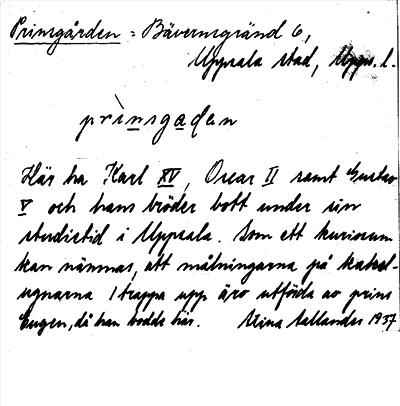 Prinsgården = Bävernsgränd 6,
Uppsala stad, Upps. l.
prìnsgaden
Här ha Karl XV, Oscar II samt Gustav
V och hans bröder bott under sin
studietid i Uppsala. Som ett kuriosum
kan nämnas, att målningarna på kakel-
ugnarna 1 trappa upp äro utförda av prins
Eugen, då han bodde här. Stina Sallander 1937